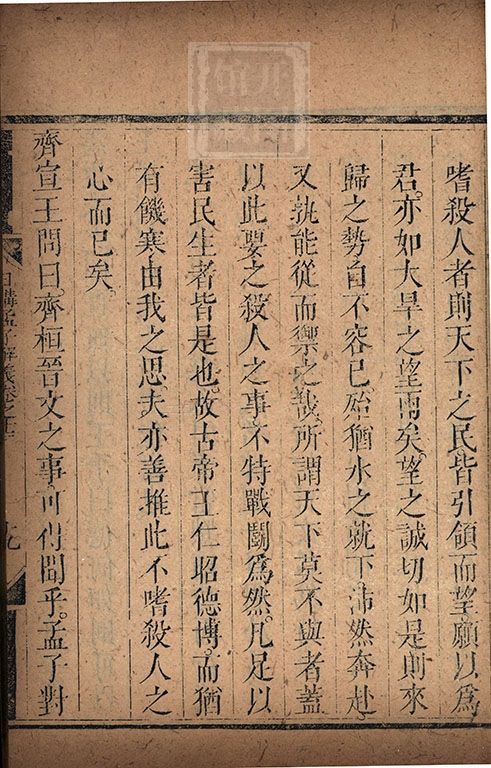 嗜殺人者則天下之民皆引領而望願以爲
君。亦如大旱之望雨矣。望之誠切如是則來
歸之勢自不容已殆猶水之就下沛然奔赴。
又孰能從而禦之哉。所謂天下莫不與者蓋
以此要之殺人之事不特戰鬬爲然。凡足以
害民生者皆是也。故古帝王仁昭德博。而猶
有饑寒由我之思。夫亦善推此不嗜殺人之
心而已矣。
齊宣王問曰。齊桓晉文之事可得聞乎。孟子對
日講孟子解義卷之十三
九